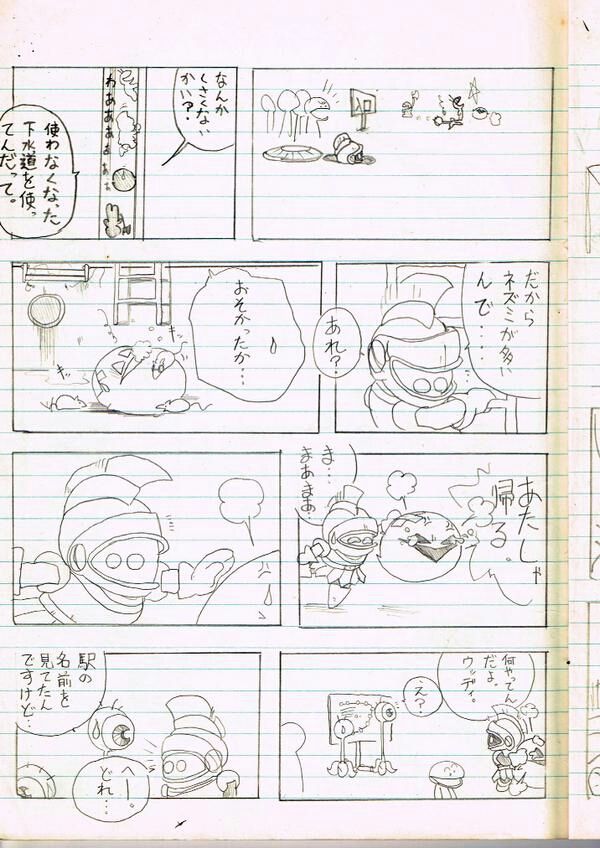 入口
なんか
くさくない
かい?
使わなくなった
下水道を使っ
てんだって。
だから
ネズミが多い
んで‥‥
あれ?
おそかったか…
あたしゃ
帰る。
ま…
まあまあ…
何やってん
だよ。
ウッディ。
え?
駅の
名前を
見てたん
ですけど…
へー。
どれ…